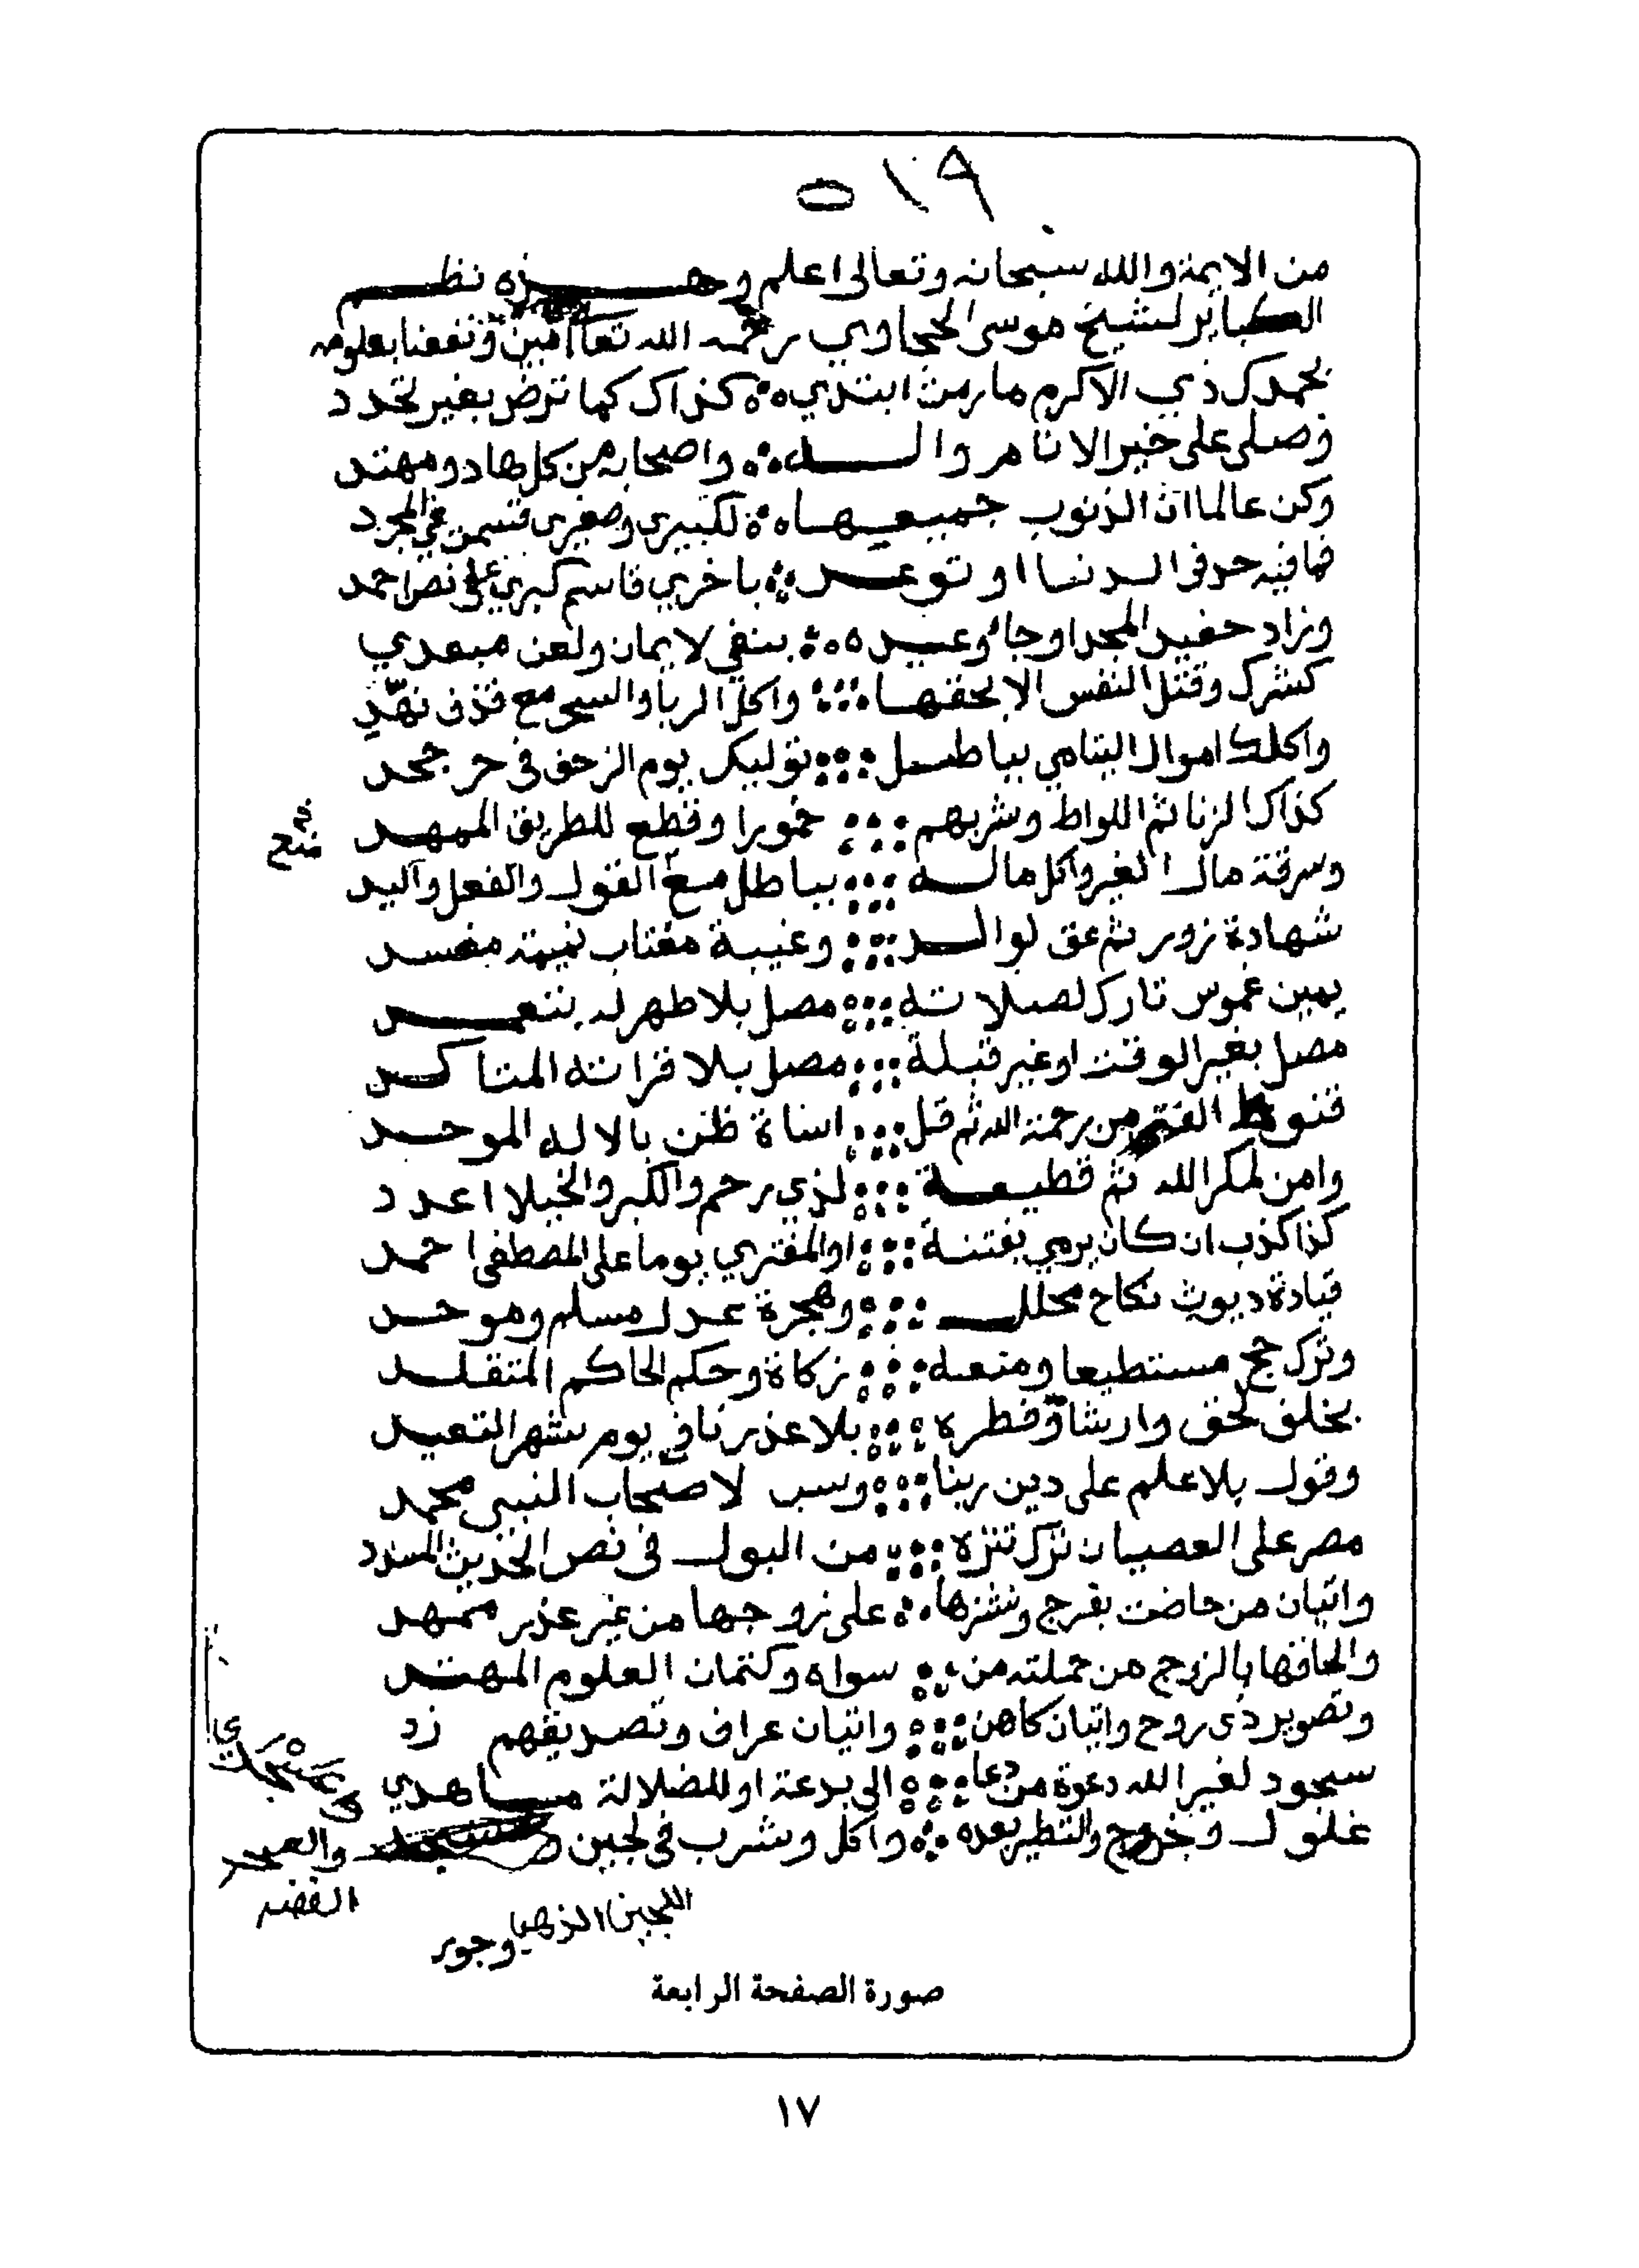 ٥١٩
من الايمة والله سبحانه وتعالى اعلم وهذه نظم
الكبائر لشيخ موسى الحجاوي رحمه الله تعا امين ونفعنا بعلومه
بحمدك ذي الاكرم ما رمت ابتدي كذاك كما ترض بغير تحدد
وصلى على خير الانام واله واصحابه من كل هاد ومهتد
وكن عالما ان الذنوب جميعها لكبيرى وصغيرى قسمن في المجرد
فما فيه حد فى الدنيا او توعد باخري فاسم كبري على نص احمد
وزاد حفيد المجد او جا وعيده بنفي لايمان ولعن مبعدي
كشرك وقتل النفس الا بحقها واكل الربا والسحر مع قذف نهّد
واكلك اموال اليتامي بباطل توليك يوم الزحف في حر جحد
كذاك الزنا ثم اللواط وشربهم خمورا وقطع للطريق الممهد
وسرقة مال الغير واكل ماله بباطل مع القول والفعل واليد
شهادة زور ثم عق لوالد وغيبة مغتاب نميمة مفسد
يمين غموس تارك لصلاته مصل بلا طهر له بتعمد
مصل بغير الوقت او غير قبلة مصل بلا قرانه المتاكد
قنوط الفتى من رحمة الله ثم قل اساة ظن بالاله الموحد
وامن لمكر الله ثم قطيعة لذي رحم والكبر والخيلا اعدد
كذا كذب ان كان يرمي بفتنة او المفتري يوما على المصطفى احمد
قيادة ديوث نكاح محلل وهجرة عدل مسلم وموحد
وترك حج مستطيعا ومنعه زكاة وحكم الحاكم المتقلد
بخلف لحق وارتشا وفطره بلا عذرنا في يوم شهر التعبد
وقول بلا علم على دين ربنا وسب لاصحاب النبى محمد
مصر على العصيان ترك تنزه من البول فى نص الحديث المسدد
واتيان من حاضت بفرج ونشزها على زوجها من غير عذر ممهد
والحاقها بالزوج من حملته من سواه وكتمان العلوم المهتد
وتصوير ذى روح واتيان كاهن واتيان عراف وتصديقهم زد
سجود لغير الله دعوة من دعا الى بدعة او للضلالة ما هدي
غلول والتطير بعده واكل وشرب فى لجين وعسجد
اللجين الذهب
الفضه
وجور
صورة الصفحة الرابعة
١٧